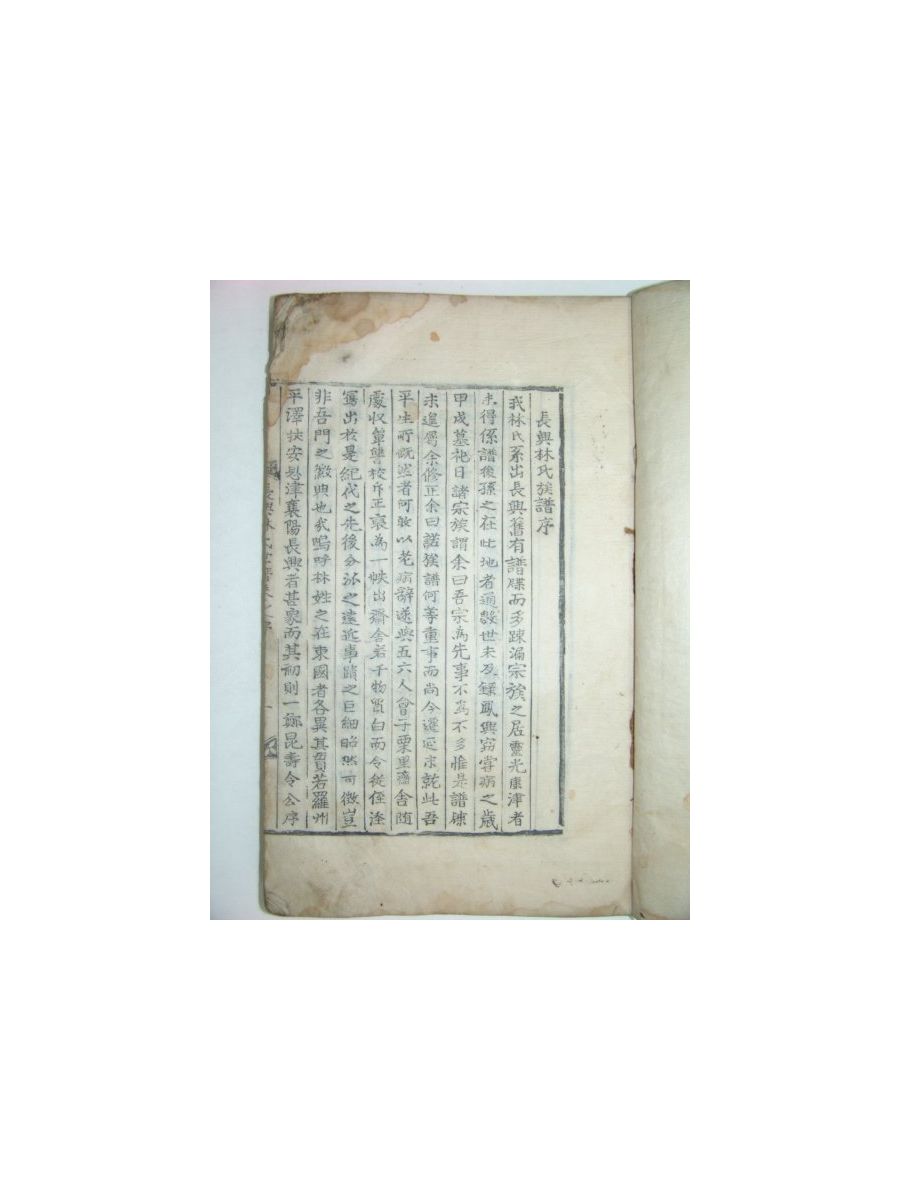 長興林氏族譜序
我林氏系出長興舊有譜牒而多踈漏宗族之居靈光康津者
未得係譜後孫之在此地者通數世未及錄鳳興窃嘗病之歲
甲戌墓祀日諸宗族謂余曰吾宗爲先事不爲不多惟是譜牒
未遑屬余修正余曰諾族譜何等重事而尚今遷延未就此吾
平生所慨然者何敢以老病辭遂與五六人會于栗里齋舍随
處収單讐校斥正裒爲一帙出齋舍若干物質白而令從侄洤
寫出於是紀代之先後分派之遠近事蹟之巨細昭然可徵豈
非吾門之徽典也哉嗚呼林姓之在東國者各異其貫若羅州
平澤扶安恩津襄陽長興者甚衆而其初則一源昆壽令公序
長興林氏世譜卷之序